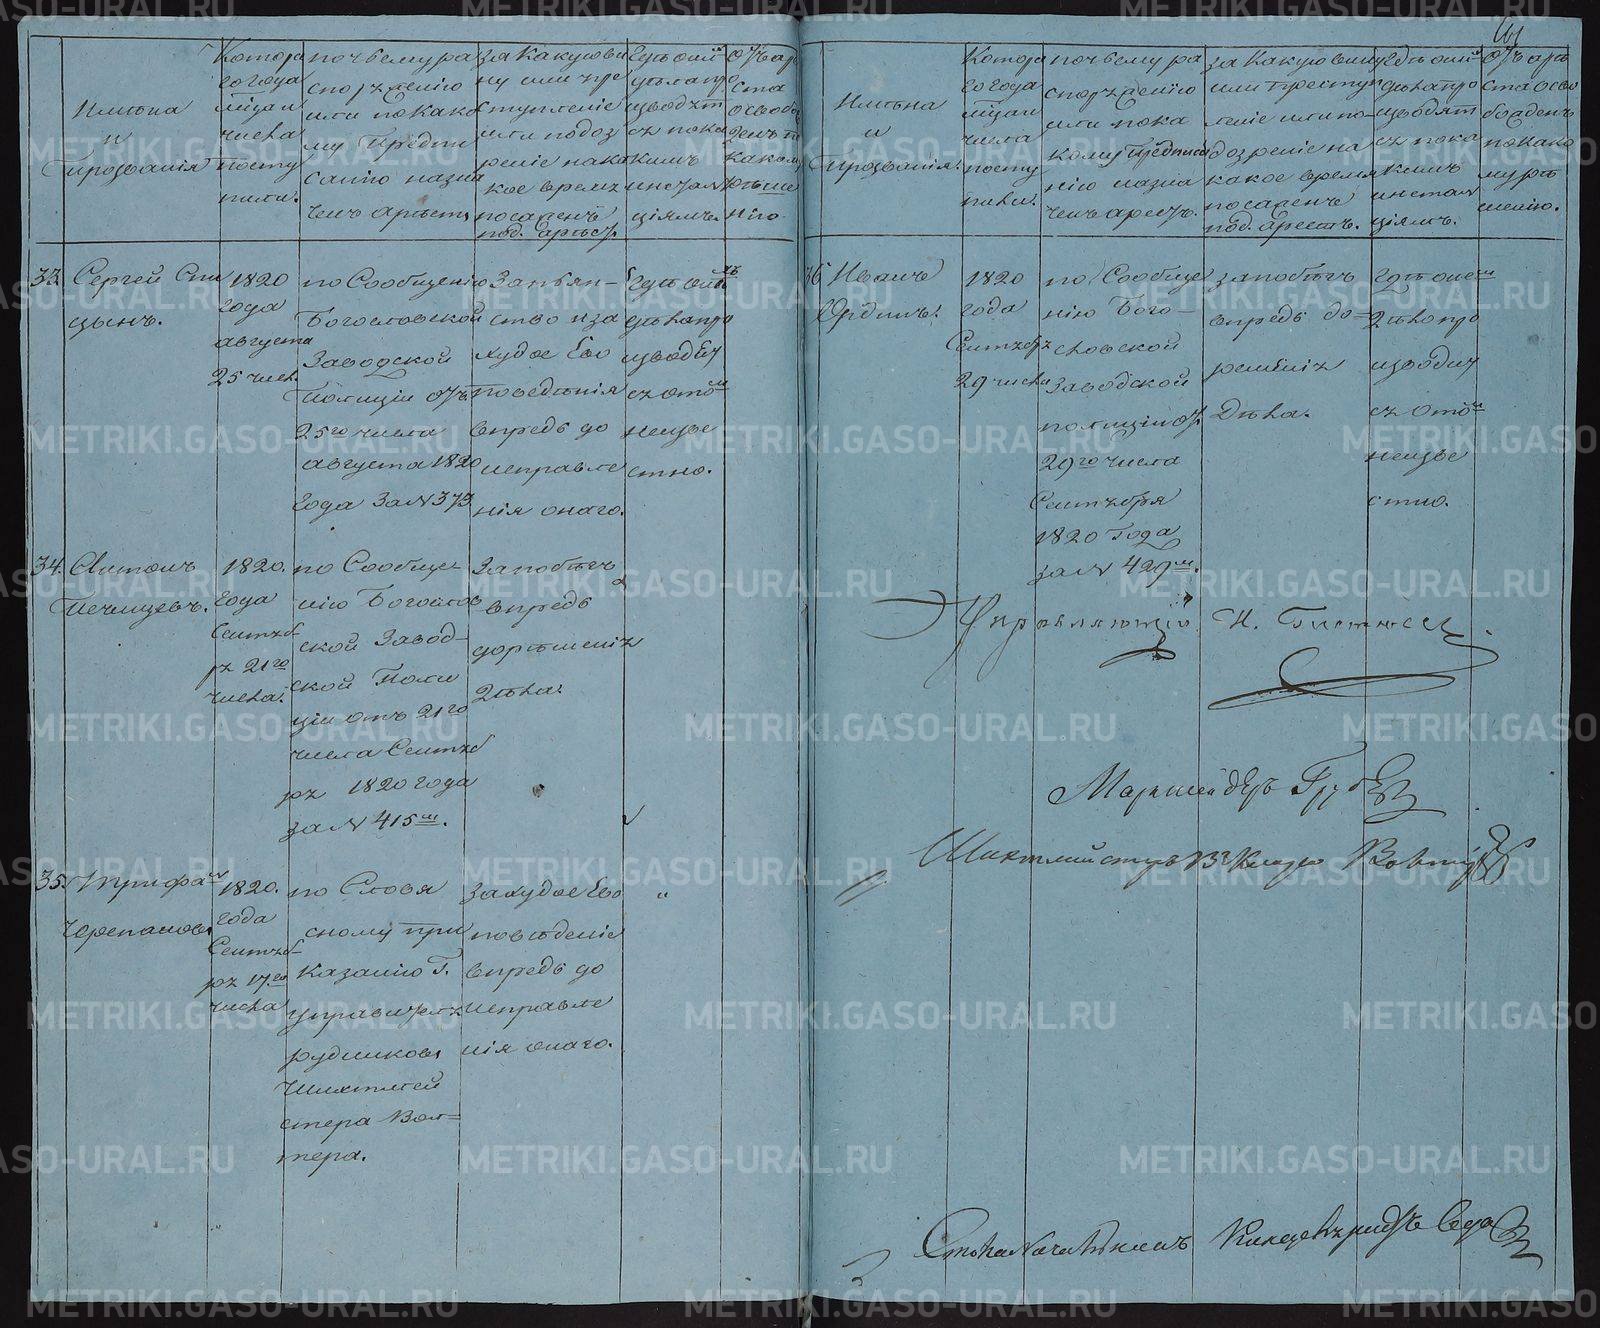 61
Имѣна
и
Прозванія
Котора
го года
мѣсяц и
числа
посту
пили.
по чьему ра
споряженію
или по како
му Предпи
санію назна
ченъ арестъ
за какую ви
ну или пре
ступленіе
или подоз
реніе на ка
кое время
посаженъ
под. арестъ.
Гдѣ ошы
дѣла про
изводят
ся по ка
кимъ
инстан
ціямъ.
отъ аре
ста
освобо
жденъ по
какому
рѣше
нію
33. Сергей Спи
цынъ.
1820
года
августа
25 числ.
по Сообщенію
Богословской
Заводской
Полиціи отъ
25го числа
августа 1820
года за N 373
За пьян-
ство и за
худое Ево
поведѣнія
впредь до
исправле
нія онаго.
Гдѣ ошы
дѣла про
изводят
ся
неизве
стно.
34. Антонъ
1820.
года
Сентяб
ря 21го
числа.
по Сообще
нію Богослов
ской Завод-
ской Поли
ціи отъ 21го
числа Сентяб
ря 1820 года
за N 415м.
За побѣгъ
впредь
до рѣшенія
дѣла.
35. Трифан
Черепановъ
1820.
года
Сентяб
ря 17.го
числа
по Слове
сному при
казанію Г.
управителя
рудниковъ
Шихтмей
стера Вол=
тера.
за худое Ево
поведеніе
впредь до
исправле
нія онаго.
"
Имѣна
и
Прозванія.
Котора
го года
мѣсяц и
числа
посту
пили.
по чьему ра
споряженію
или по ка
кому предписа
нію назна
ченъ арестъ.
за какую вину
или престу
леніе или по-
дозреніе на
какое время
посаженъ
под. арестъ.
Гдѣ ошы
дѣла про
изводят
ся по ка
кимъ
инстан
ціямъ.
отъ аре
ста осво
божденъ
по како
му рѣ
шенію.
36 Иванъ
Юдинъ.
1820
года
Сентября
29 числа
по Сообще
нію Бого-
словской
Заводской
полиціи отъ
29го числа
Сентября
1820 года
за N 429м.
за побѣгъ
впредь до=
решенія
Дѣла.
гдѣ оные
дѣла про
изводят
ся
неизве
стно.
Управляющій
Маркшейдеръ
Шихтмейстеръ
METRIKI.GASO-URAL.RU